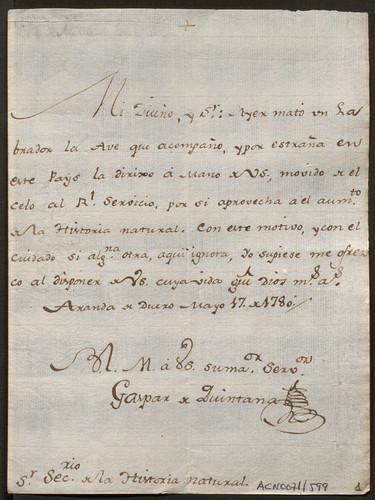 Mi Dueño, y Sr: Ayer mató vn la
brador la Ave que acompaño, y por estraña en
este Pays la dirixo á Mano de VS, movido de el
celo al Rl. Servicio, por si aprovecha a el aumto
de la Historia natural. Con este motivo, y con el
cuidado si algna otra, aqui ignota, Yo supiese me ofrez
co al disponer de VS. cuya vida gue Dios ms. as.
Aranda de Duero Mayo 17. de 1780.
Gaspar de Quintana
Sr Secrio de la Historia natural.
ACN0071/599